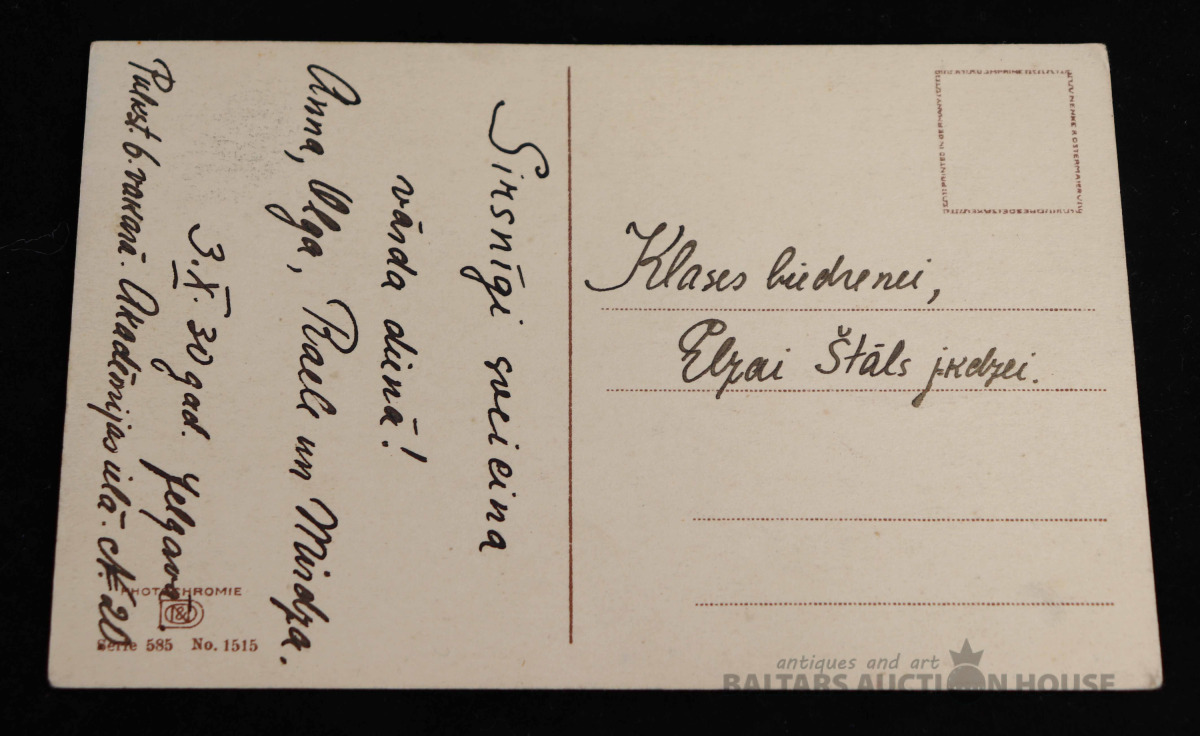 Sirsnīgi sveicina
vārda dienā!
Anna, Olga, Raele un Mirdza.
3.X.30 gad. Jelgavā.
Pulkst. 6. vakarā. Akadēmijas ielā. №20
Klases biedrenei,
Elzai Štāls j-kdzei.
PHOTOCHROMIE
Serie 585 No. 1515
antiques and art
BALTARS AUCTION HOUSE